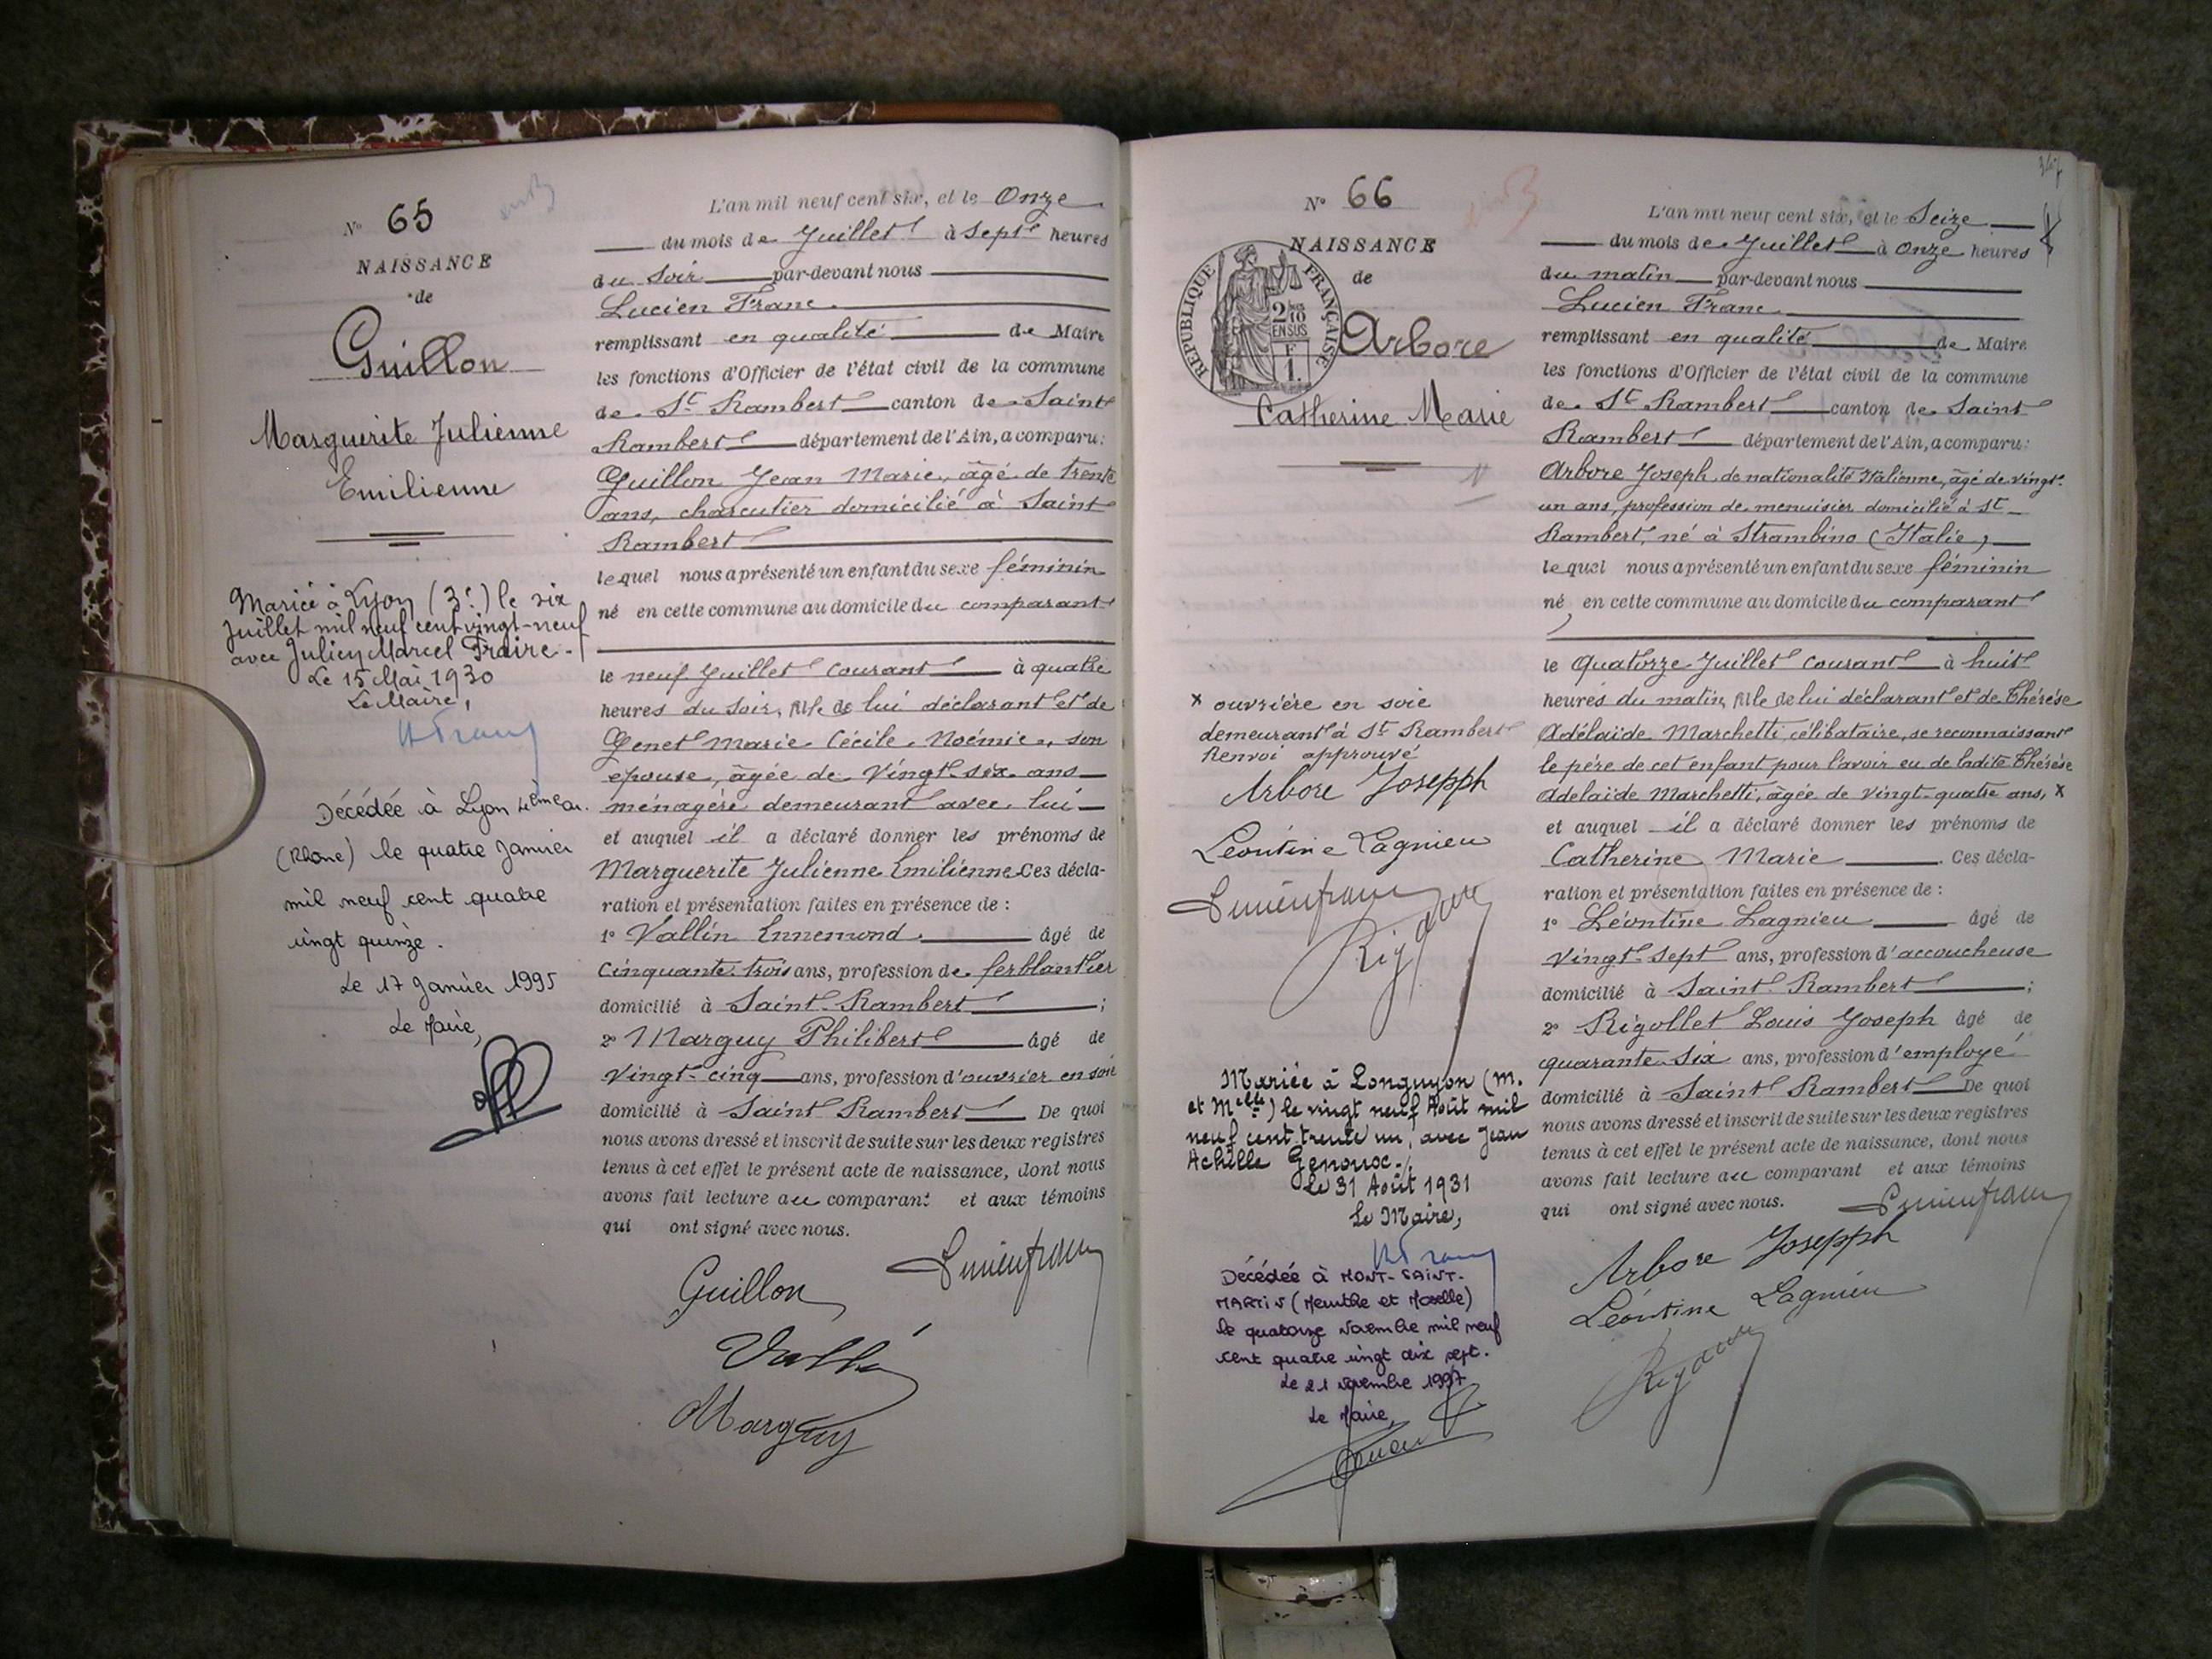 N° 65
NAISSANCE
de
Guillon
Marguerite Julienne
Emilienne
Mariée à Lyon (3e) le six
Juillet mil neuf cent vingt-neuf
avec Julien Marcel Fraire.
Le 15 Mai 1930
Le Maire,
Décédée à Lyon 4ème ar.
(Rhône) le quatre Janvier
mil neuf cent quatre
vingt quinze.
Le 17 Janvier 1995
Le Maire,
L'an mil neuf cent six, et le Onze
du mois de Juillet à Sept heures
du Soir par-devant nous
Lucien Franc
remplissant en qualité de Maire
les fonctions d'Officier de l'état civil de la commune
de St Rambert canton de Saint
Rambert département de l'Ain, a comparu:
Guillon Jean Marie, âgé de trente
ans, charcutier domicilié à Saint
Rambert
lequel nous a présenté un enfant du sexe féminin
né en cette commune au domicile du comparant
le neuf Juillet courant à quatre
heures du Soir, fille de lui déclarant et de
Genet Marie Cécile Noémie, son
épouse, âgée de Vingt-six ans
ménagère demeurant avec lui
et auquel il a déclaré donner les prénoms de
Marguerite Julienne Emilienne Ces décla-
ration et présentation faites en présence de :
1° Vallin Ennemond âgé de
Cinquante-trois ans, profession de ferblantier
domicilié à Saint-Rambert ;
2° Marguy Philibert âgé de
Vingt-cinq ans, profession d'ouvrier en soie
domicilié à Saint Rambert De quoi
nous avons dressé et inscrit de suite sur les deux registres
tenus à cet effet le présent acte de naissance, dont nous
avons fait lecture au comparant et aux témoins
qui ont signé avec nous.
Lucien franc
Guillon
Marguy
N° 66
NAISSANCE
de
REPUBLIQUE FRANÇAISE
2/10
EN SUS
F
1.
Arbore
Catherine Marie
x ouvrière en soie
demeurant à St Rambert
Renvoi approuvé
Arbore Josepph
Léontine Lagnieu
Lucien franc
Mariée à Longuyon (M.
et Mlle) le vingt neuf Août mil
neuf cent trente un, avec Jean
Achille Genouse.
Le 31 Août 1931
Le Maire,
Décédée à MONT-SAINT-
MARTIN (Meurthe et Moselle)
le quatorze Novembre mil neuf
cent quatre vingt dix sept.
Le 21 Novembre 1997
Le Maire,
L'an mil neuf cent six, et le Seize
du mois de Juillet à Onze heures
du matin par-devant nous
Lucien Franc
remplissant en qualité de Maire
les fonctions d'Officier de l'état civil de la commune
de St Rambert canton de Saint
Rambert département de l'Ain, a comparu:
Arbore Joseph de nationalité Italienne, âgé de vingt-
un ans, profession de menuisier domicilié à St
Rambert, né à Strambino (Italie)
lequel nous a présenté un enfant du sexe féminin
né en cette commune au domicile du comparant
le Quatorze Juillet courant à huit
heures du matin, fille de lui déclarant et de Thérèse
Adélaïde Marchetti, célibataire, se reconnaissant
le père de cet enfant pour l'avoir eu de ladite Thérèse
Adelaïde Marchetti, âgée de vingt-quatre ans, x
et auquel il a déclaré donner les prénoms de
Catherine Marie . Ces décla-
ration et présentation faites en présence de :
1° Léontine Lagnieu âgé de
Vingt-Sept ans, profession d'accoucheuse
domicilié à Saint Rambert ;
2° Rigollet Louis Joseph âgé de
quarante-six ans, profession d'employé
domicilié à Saint Rambert De quoi
nous avons dressé et inscrit de suite sur les deux registres
tenus à cet effet le présent acte de naissance, dont nous
avons fait lecture au comparant et aux témoins
qui ont signé avec nous.
Lucien franc
Arbore Josepph
Léontine Lagnieu